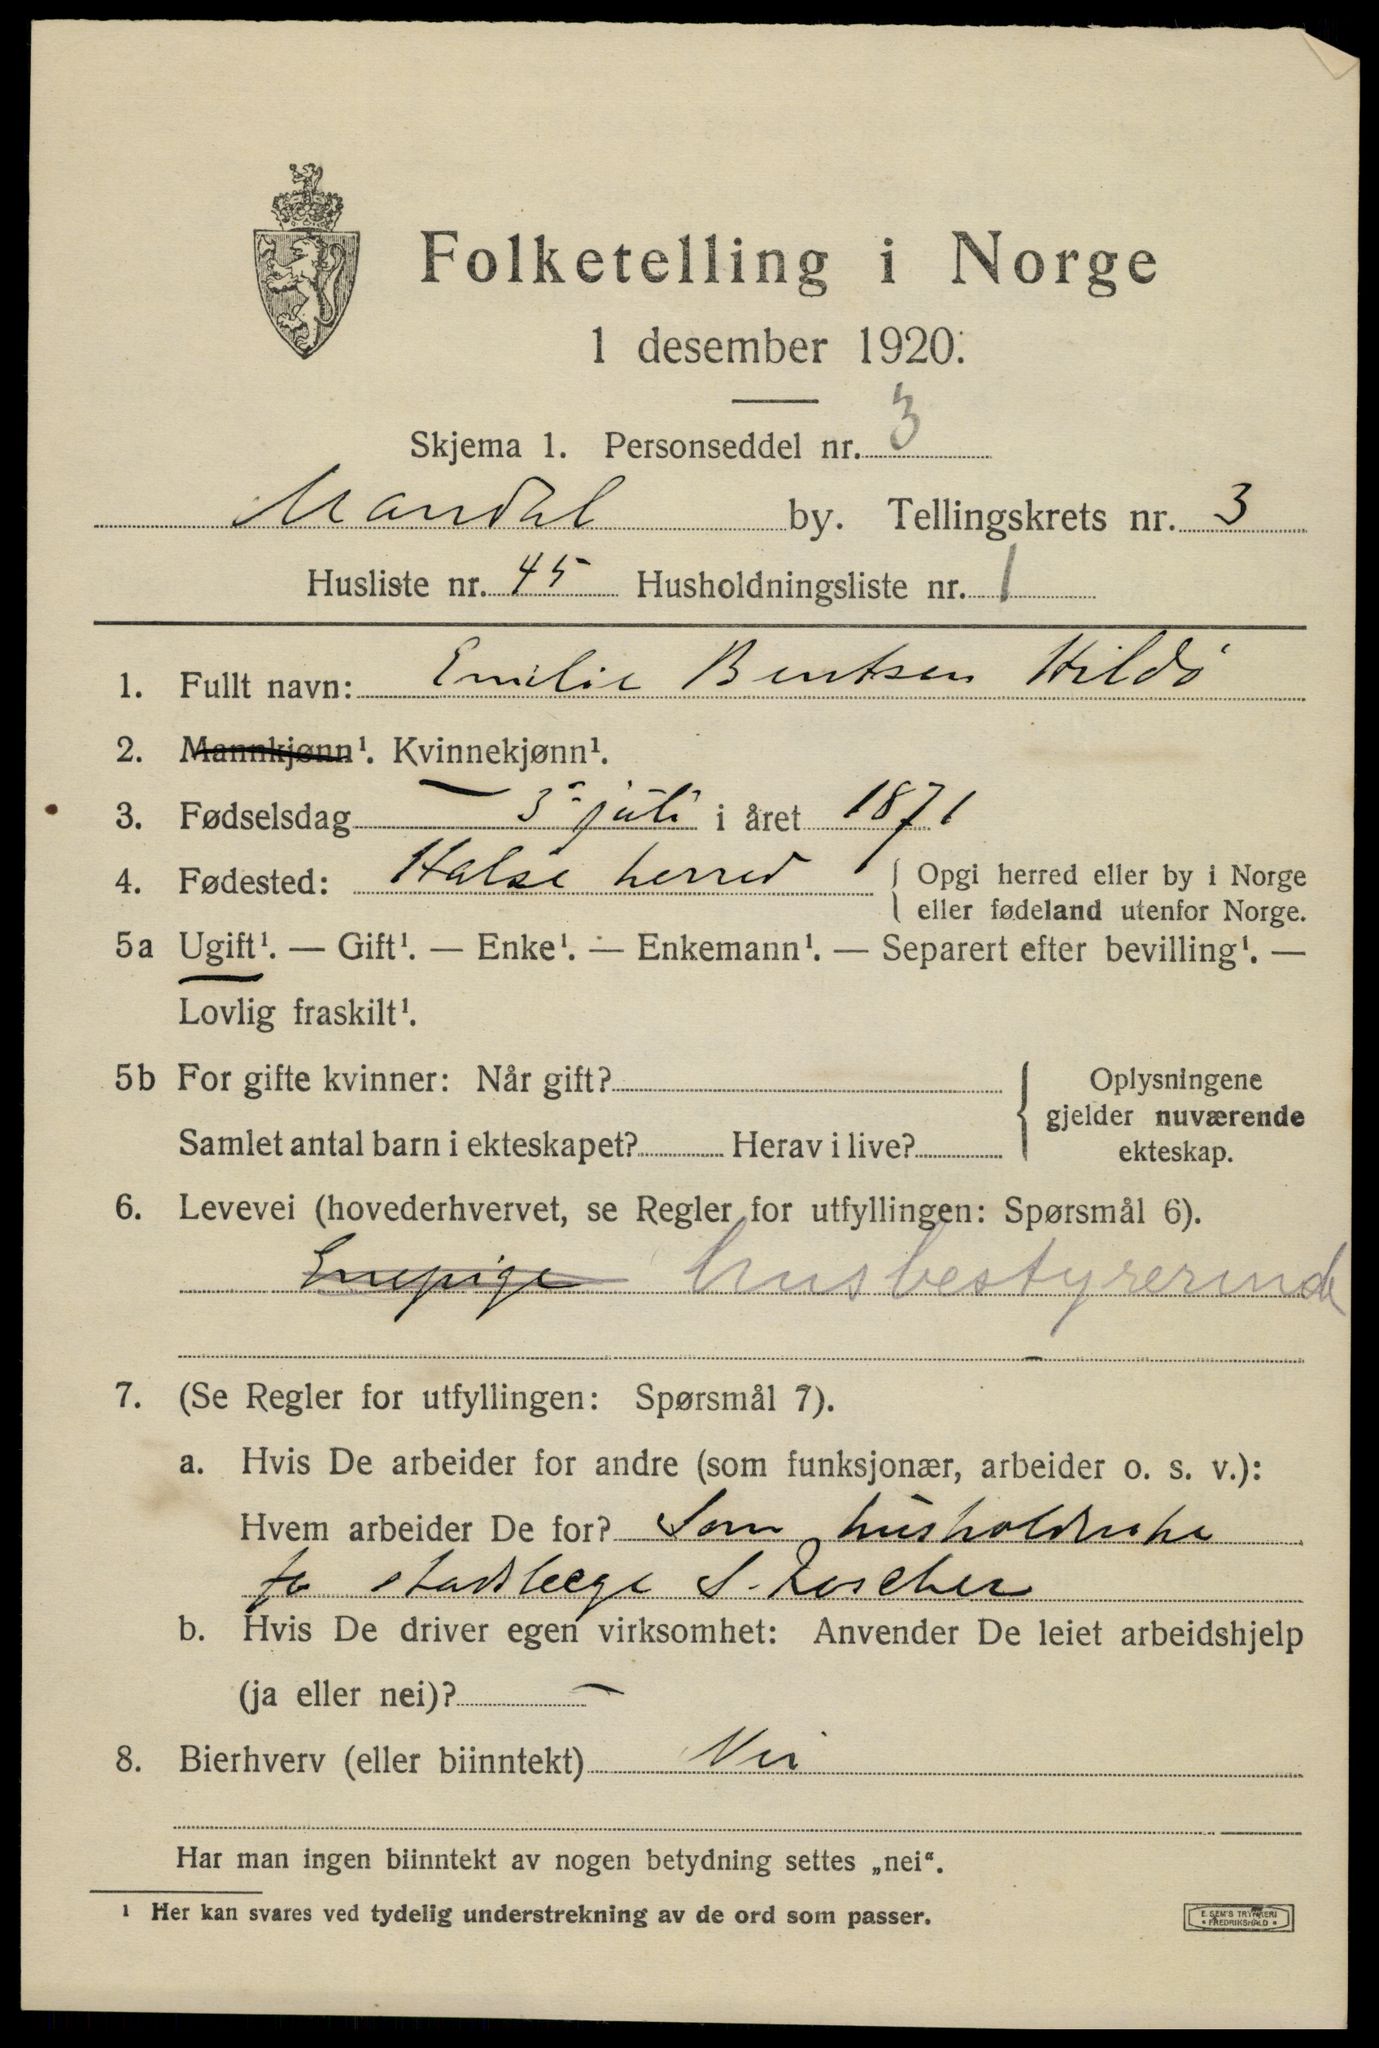 Folketelling i Norge
1 desember 1920.
Skjema 1. Personseddel nr. 3
Mandal by. Tellingskrets nr. 3
Husliste nr. 45 Husholdningsliste nr. 1
1. Fullt navn: Emilie Bentsen Hildö
2. Mannkjønn¹. Kvinnekjønn¹.
3. Fødselsdag 3 juli i året 1871
4. Fødested: Halse herred { Opgi herred eller by i Norge
eller fødeland utenfor Norge.
5a Ugift¹. — Gift¹. — Enke¹. — Enkemann¹. — Separert efter bevilling¹. —
Lovlig fraskilt¹.
5b For gifte kvinner: Når gift? } Oplysningene
gjelder nuværende
Samlet antal barn i ekteskapet? Herav i live?
ekteskap.
6. Levevei (hovederhvervet, se Regler for utfyllingen: Spørsmål 6).
Enepige husbestyrerinde
7. (Se Regler for utfyllingen: Spørsmål 7).
a. Hvis De arbeider for andre (som funksjonær, arbeider o. s. v.):
Hvem arbeider De for? Som
stadslæge S.
b. Hvis De driver egen virksomhet: Anvender De leiet arbeidshjelp
(ja eller nei)? —
8. Bierhverv (eller biinntekt) Nei
Har man ingen biinntekt av nogen betydning settes „nei“.
¹ Her kan svares ved tydelig understrekning av de ord som passer.
E. SEM'S TRYKKERI
• FREDRIKSHALD •